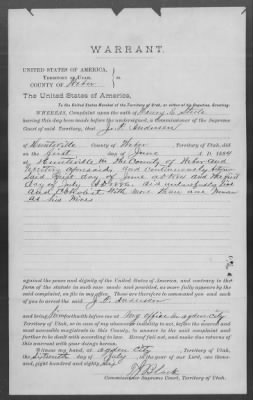 WARRANT.
UNITED STATES OF AMERICA,
TERRITORY OF UTAH, ss
COUNTY OF Weber
The United States of America,
To the United States Marshal of the Territory of Utah, or either of his Deputies, Greeting:
WHEREAS, Complaint upon the oath of Henry C. Steele
having this day been made before the undersigned, a Commissioner of the Supreme
Court of said Territory, that J. F. Anderson
of Huntsville County of Weber Territory of Utah, did
on the first day of June A. D. 1884
at Huntsville in the County of Weber and
Territory aforesaid and continuously between
said first day of June A.D. 1884 and the first
day of July A.D. 1886. did unlawfully live
and Cohabit with more than one woman
as his wives
against the peace and dignity of the United States of America, and contrary to the
form of the statute in such case made and provided, as more fully appears by
said complaint, on file in my office. These are therefore to command you and each
of you to arrest the said J. F. Anderson
and bring forthwith before me my office in Ogden City
Territory of Utah, or in case of my absence or inability to act, before the nearest and
most accessible magistrate in this County, to answer to the said complaint and be
further to be dealt with according to law. Hereof fail not, and make due returns of
this warrant with your doings hereon.
Witness my hand, at Ogden City Territory of Utah,
the Sixteenth day of July in the year of our Lord, one thousand,
eight hundred and eighty six
Black
Commissioner Supreme Court, Territory of Utah.